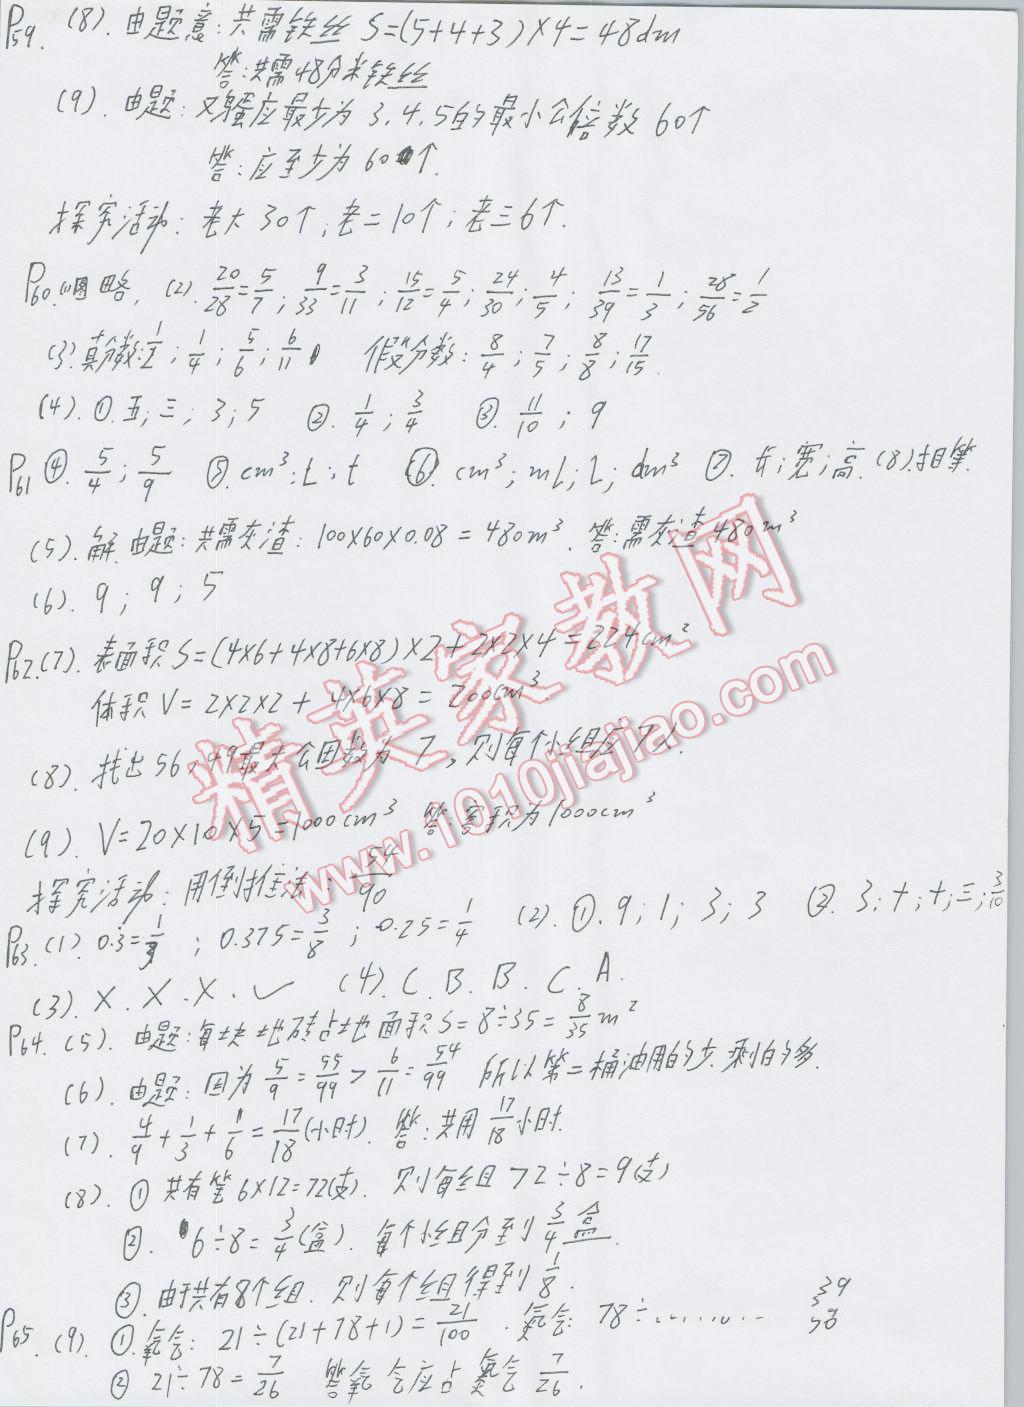 P59. (8). 由题意: 共需铁丝 S=(5+4+3)×4=48dm
答:共需48分米铁丝
(9). 由题: 鸡蛋应最少为 3.4.5的最小公倍数 60个
答: 应至少为 60个.
探究活动: 老大30个; 老二10个; 老三6个.
P60. 略. (2). 20/28=5/7; 9/33=3/11; 15/12=5/4; 24/30; 4/5; 13/39=1/3; 28/56=1/2
(3). 真分数: 1/2; 1/4; 5/6; 6/11 假分数: 8/4; 7/5; 8/8; 17/15.
(4). ①.五; 三; 3; 5 ②. 1/4; 3/4 ③. 11/10; 9
P61 ④. 5/4; 5/9 ⑤. cm³; L; t ⑥. cm³; mL; L; dm³ ⑦. 长; 宽; 高. (8).相等.
(5). 解. 由题: 共需灰渣: 100×60×0.08=480m³. 答: 需灰渣480m³
(6). 9; 9; 5
P62.(7). 表面积 S=(4×6+4×8+6×8)×2+2×2×4=224cm²
体积 V=2×2×2+4×6×8=200cm³.
(8). 找出56, 49最大公因数为7, 则每个小组应7人.
(9). V=20×10×5=1000cm³ 答: 容积为1000cm³
探究活动: 用倒推法: 54/90
P63.(1). 0.3=1/3; 0.375=3/8; 0.25=1/4 (2). ①. 9; 1; 3; 3 ②. 3; 十; 十; 三; 3/10
(3). ×. ×. ×. ✓ (4). C. B. B. C. A.
P64. (5). 由题: 每块地砖占地面积 S=8÷35=8/35 m²
(6). 由题: 因为 5/9=55/99>6/11=54/99 所以第二桶油用的少. 剩的多.
(7). 4/9+1/3+1/6=17/18(小时). 答: 共用17/18小时.
(8). ① 共有笔6×12=72(支). 则每组 72÷8=9(支)
②. 6÷8=3/4(盒). 每个小组分到3/4盒.
③. 由于共有8个组. 则每个组得到1/8.
P65. (9). ①.氧气: 21÷(21+78+1)=21/100. 氮气: 78÷........ 39/50
② 21÷78=7/26 答氧气应占氮气7/26.
精英家教网
www.1010jiajiao.com